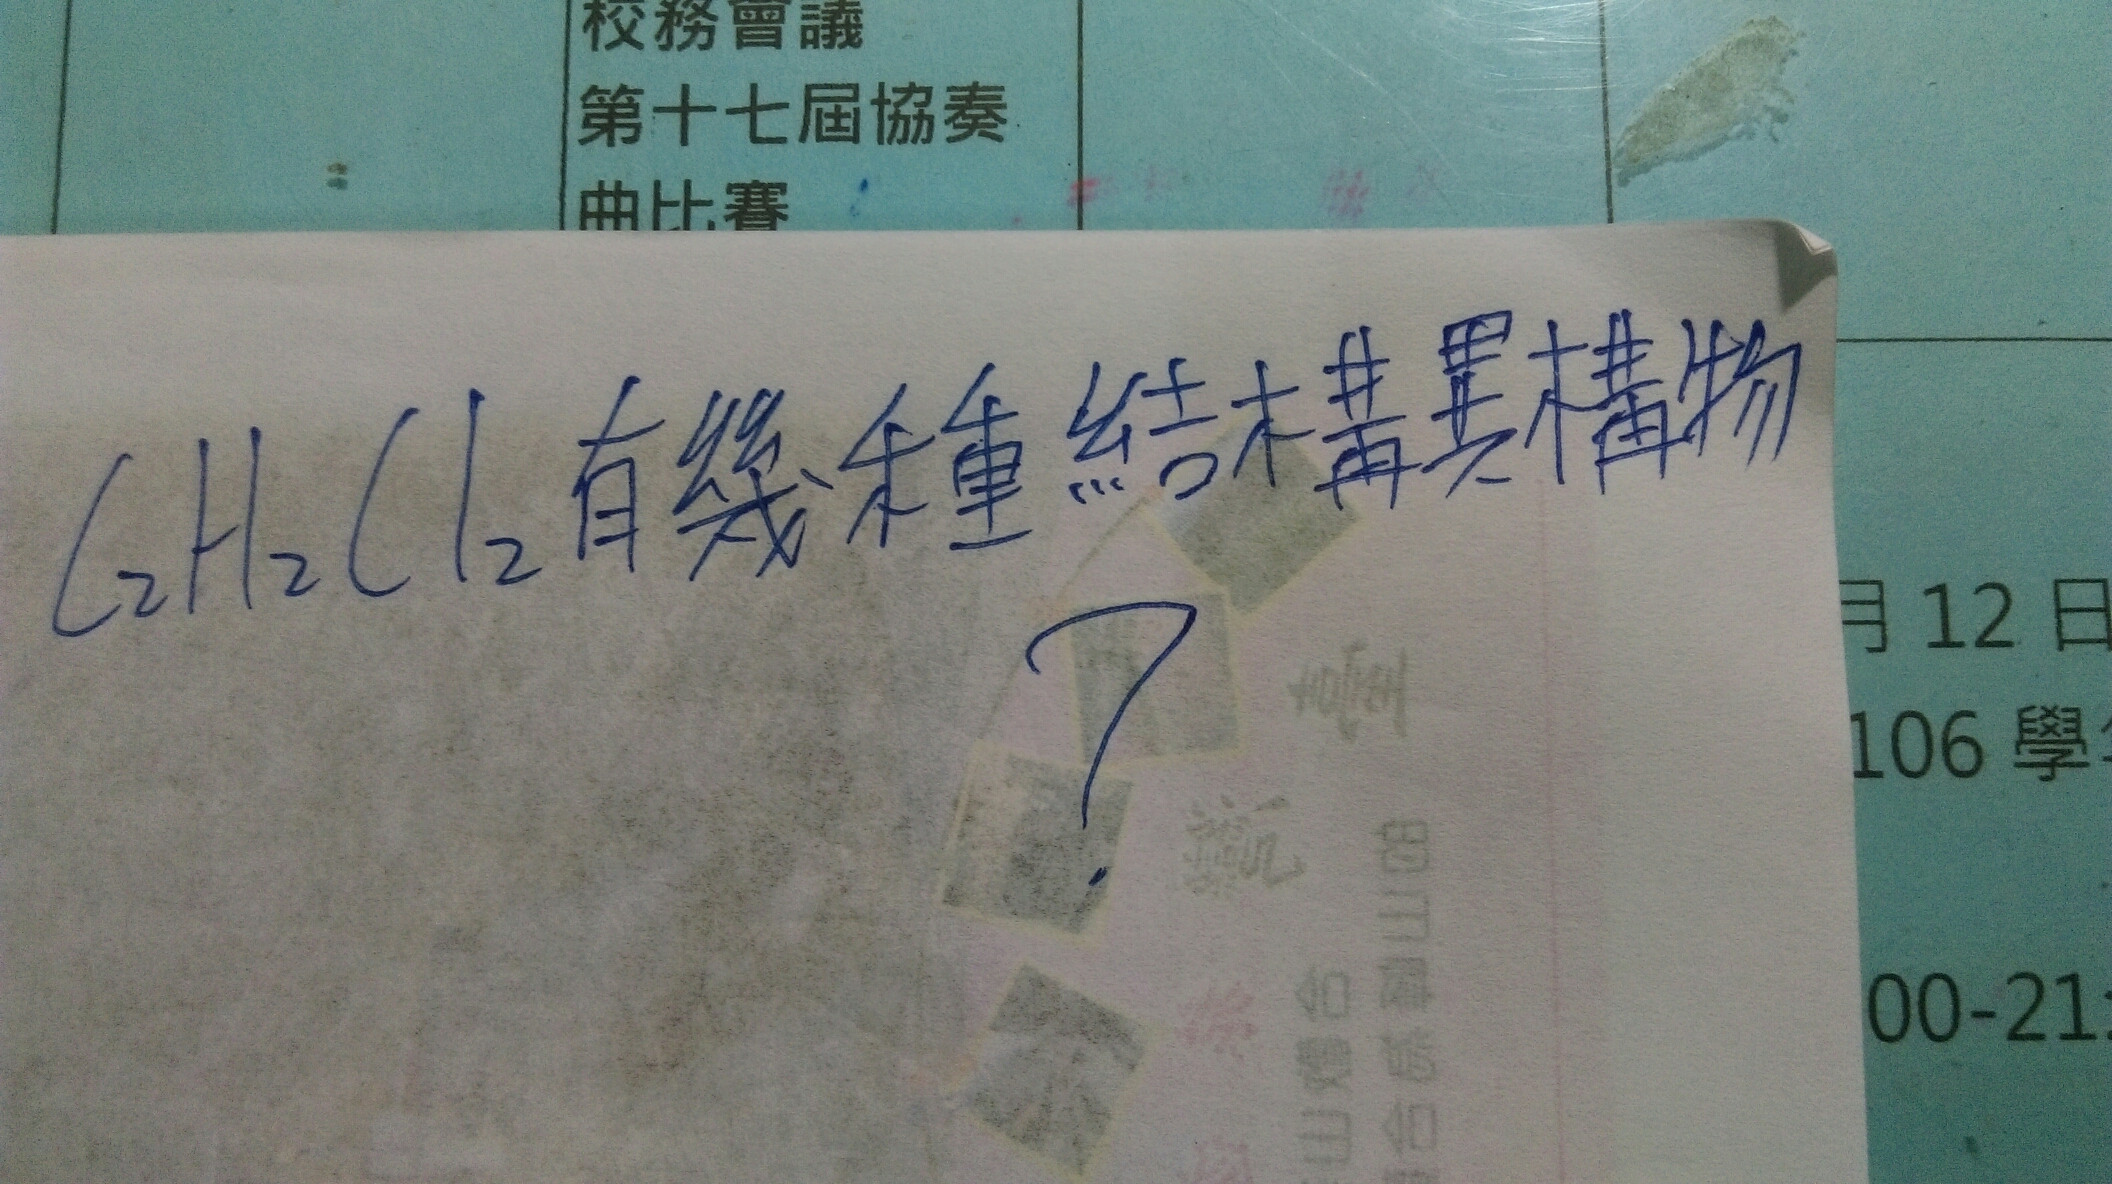 校務會議
第十七屆協奏
曲比賽
C₂H₂Cl₂有幾種結構異構物
?
月 12 日
106 學
00-21: